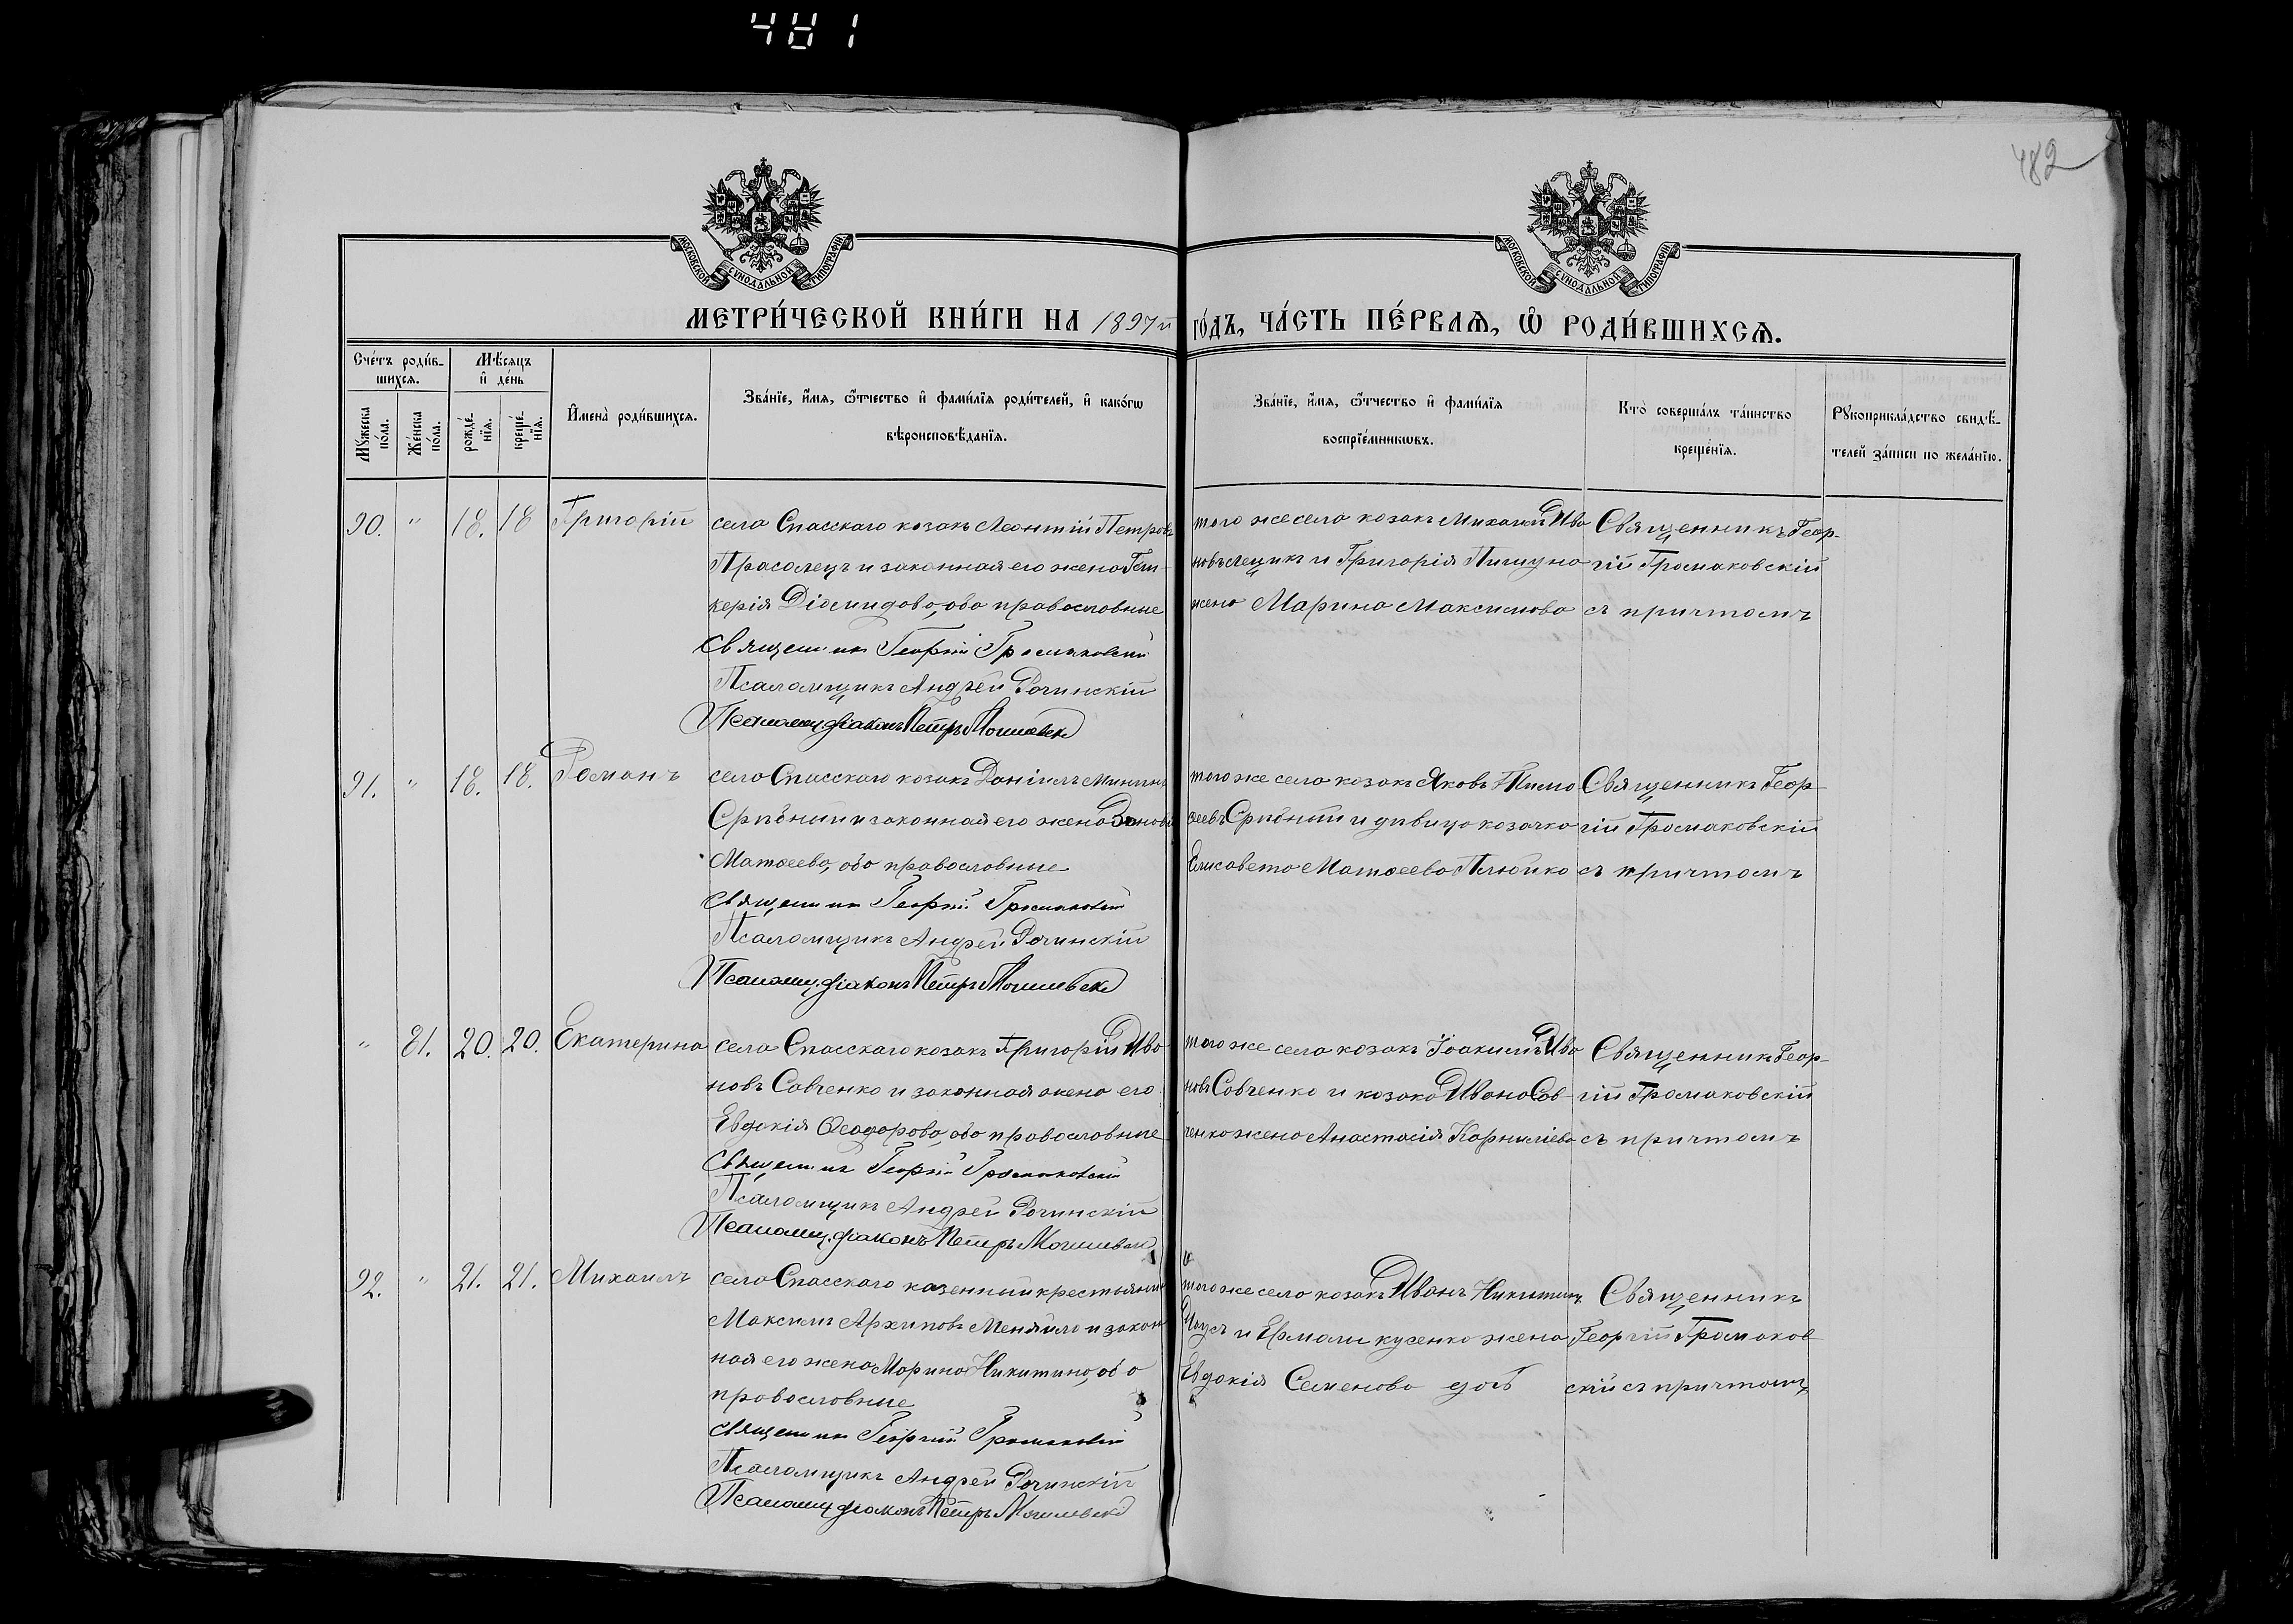 481
482
МОСКОВСКОЙ СѴНОДАЛЬНОЙ ТИПОГРАФІИ
МОСКОВСКОЙ СѴНОДАЛЬНОЙ ТИПОГРАФІИ
МЕТРИ́ЧЕСКОЙ КНИ́ГИ НА 1897й го́дъ, ЧА́СТЬ ПЕ́РВАѦ, Ѽ РОДИ́ВШИХСѦ.
Сче́тъ роди́в-
шихсѧ.
Мѣ́сѧцъ
и҆ де́нь
Мꙋ́жеска
по́ла.
Же́нска
по́ла.
рожде́-
нїѧ.
креще́-
нїѧ.
И҆мена̀ роди́вшихсѧ.
Зва́нїе, и҆́мѧ, ѻ҆́тчество и҆ фами́лїѧ роди́телей, и҆ како́гѡ
вѣроисповѣ́данїѧ.
Зва́нїе, и҆́мѧ, ѻ҆́тчество и҆ фами́лїѧ
воспрїе́мникѡвъ.
Кто̀ соверша́лъ та́инство
креще́нїѧ.
Рꙋкоприкла́дство свидѣ́-
телей за́писи по жела́нїю.
90. " 18. 18 Григорій
села Спасскаго козакъ Леонтій Петровъ
Прасолецъ и законная его жена Гли-
керія Діомидова, оба православные
Священникъ Георгій Громаковскій
Псаломщикъ Андрей Рочинскій
Псаломщ. діаконъ Петръ Могилевскі
того же села козакъ Михаилъ Ива
новъ и Григорія
жена Марина Максимова
Священникъ Геор-
гій Громаковскій
съ причтомъ
91. " 18. 18. Романъ
села Спасскаго козакъ Даніилъ Мининъ
Срибный и законная его жена Зиновія
Матѳеева, оба православные
Священникъ Георгій Громаковскій
Псаломщикъ Андрей Рочинскій
Псаломщ. діаконъ Петръ Могилевскі
того же села козакъ Яковъ Тимо
ѳеевъ Срибный и дѣвица козачка
Елисавета Матѳеева
Священникъ Геор-
гій Громаковскій
съ причтомъ
" 81. 20. 20. Екатерина
села Спасскаго козакъ Григорій Ива
новъ Савченко и законная жена его
Евдокія Ѳеодорова, оба православные
Священникъ Георгій Громаковскій
Псаломщикъ Андрей Рочинскій
Псаломщ. діаконъ Петръ Могилевскі
того же села козакъ Іоакимъ Ива
новъ Савченко и козака Ивана Сав
ченко жена Анастасія Корниліева
Священникъ Геор-
гій Громаковскій
съ причтомъ
92. " 21. 21. Михаилъ
села Спасскаго казенный крестьянинъ
Максимъ Архиповъ Меняйло и закон
ная его жена Марина Никитина, оба
православные
Священникъ Георгій Громаковскій
Псаломщикъ Андрей Рочинскій
Псаломщ. діаконъ Петръ Могилевскі
того же села козакъ Иванъ Никитинъ
и жена
Евдокія Семенова
Священникъ
Георгій Громаков
скій съ причтомъ